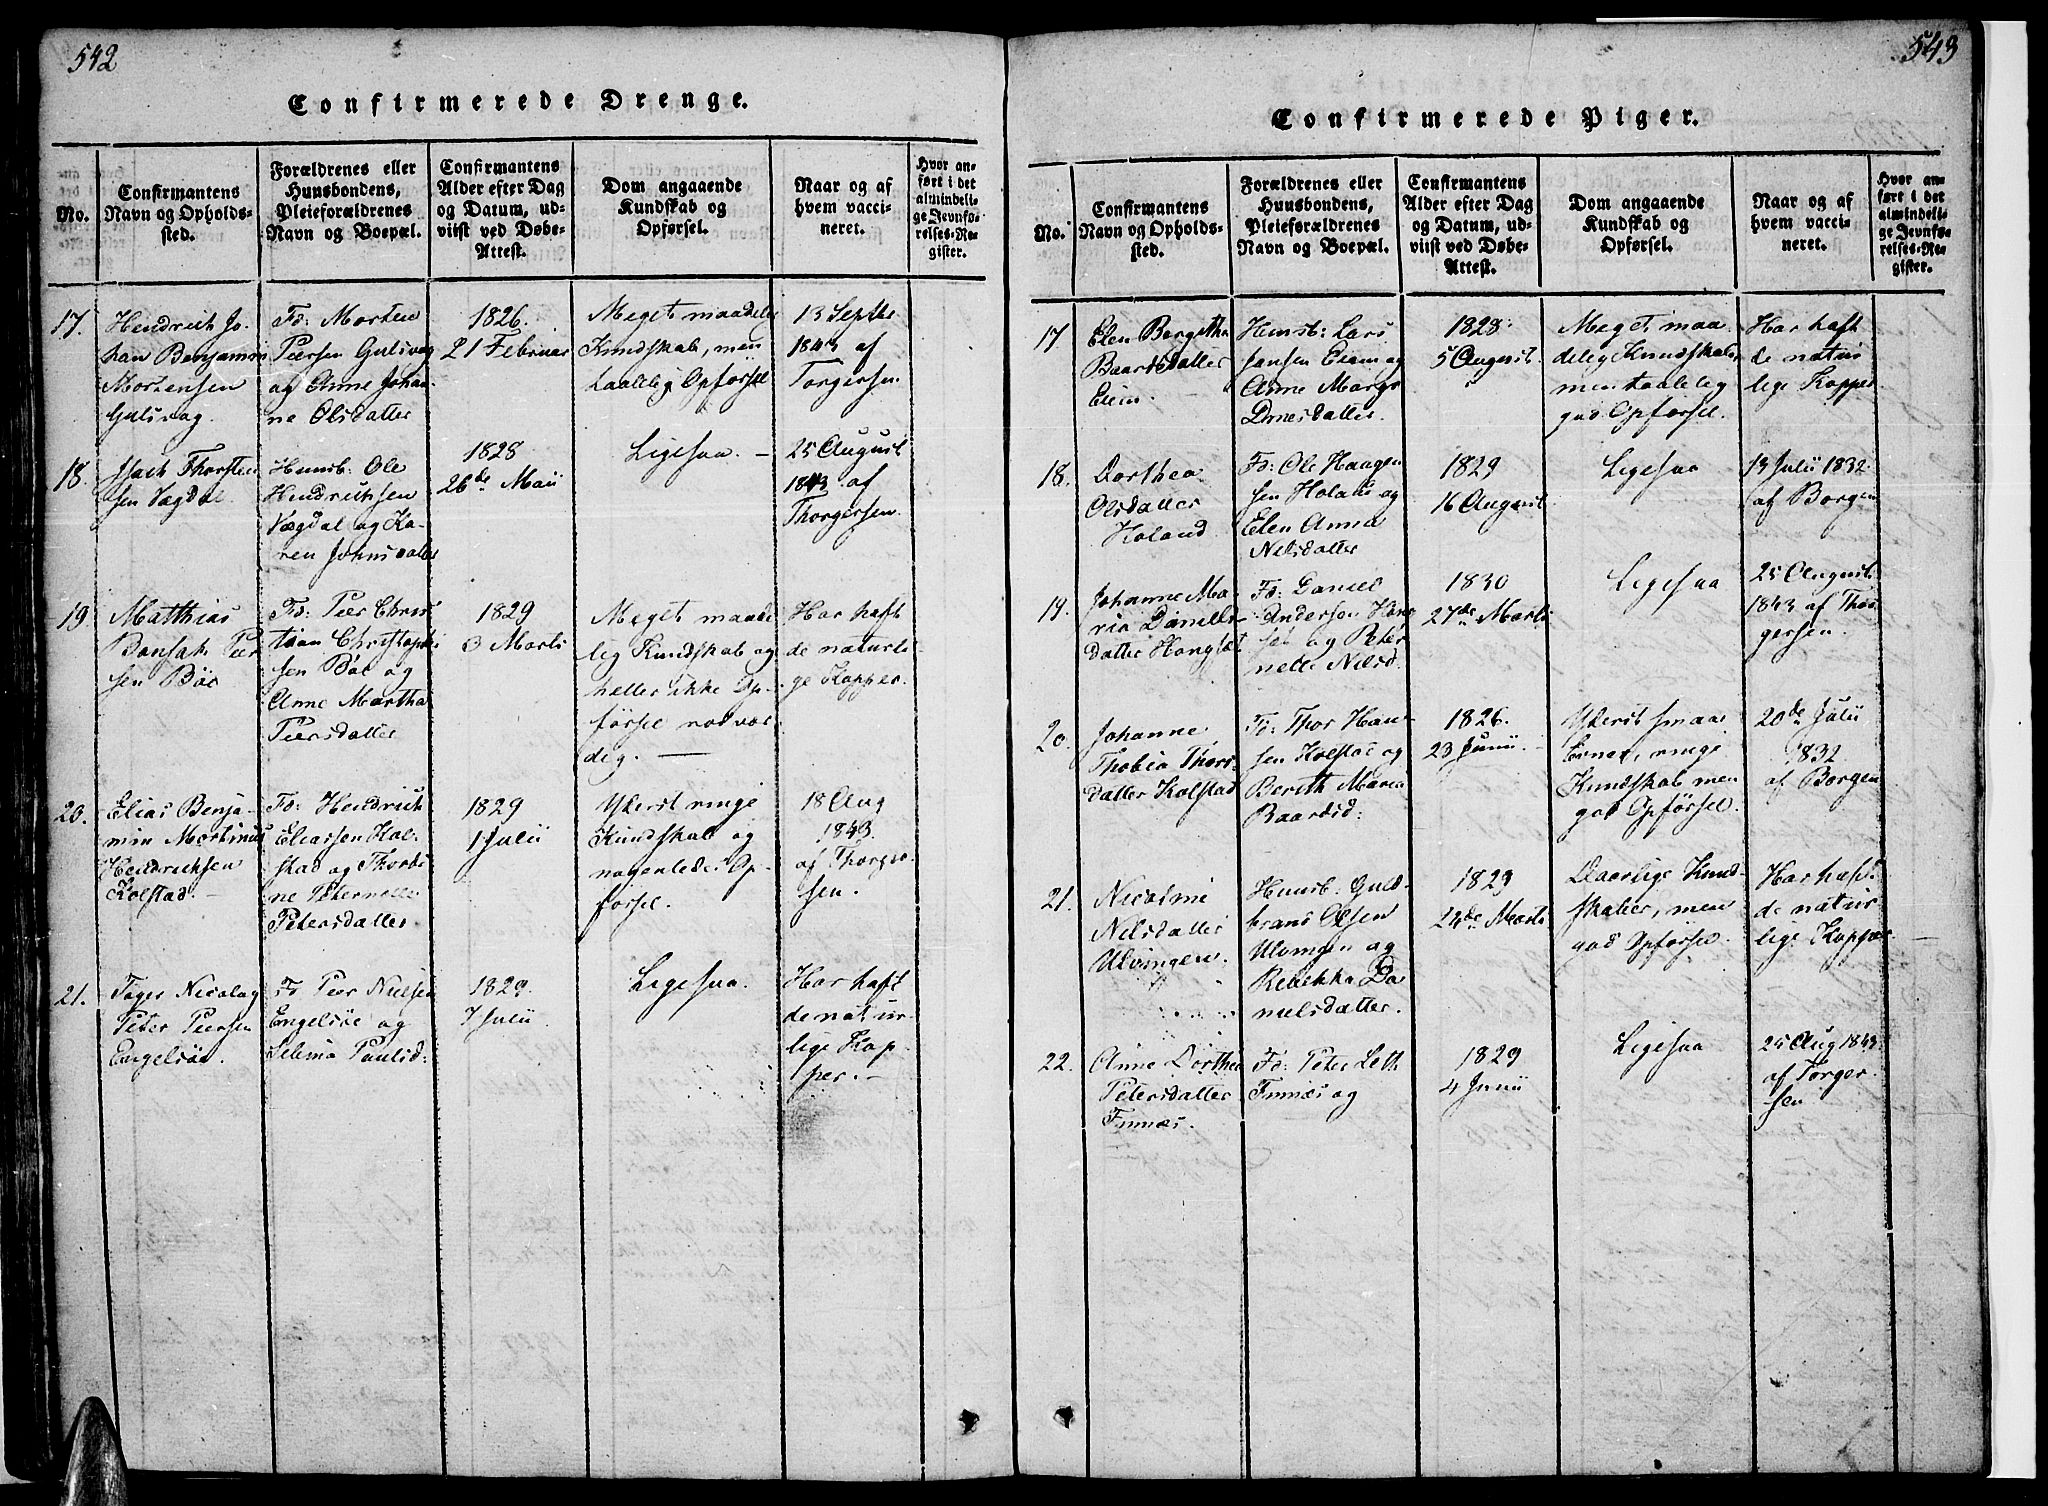 542
Confirmerede Drenge.
No.
Confirmantens
Navn og Opholds-
sted.
Forældrenes eller
Huusbondens,
Pleieforældrenes
Navn og Boepæl.
Confirmantens
Alder efter Dag
og Datum, ud-
viist ved Døbe-
Attest.
Dom angaaende
Kundskab og
Opførsel.
Naar og af
hvem vacci-
neret.
Hvor an-
ført i det
almindeli-
ge Jevnfø-
relses-Re-
gister.
17.
Hendrich Jo-
han Benjamin
Mortensen
Gulsvag.
Fd: Morten
Peersen Gulsvag
og Anne Johan-
ne Olsdatter
1826.
21 Februar
Meget maadelig
Kundskab, men
taalelig Opførsel
13 Septbr
1843 af
Torgersen.
18.
Isach Thorsten
sen Vægdal
Huusb: Ole
Hendrichsen
Vægdal og Ka-
ren Johnsdatter
1828
26de Maii
Ligesaa. -
25 August
1843 af
Thorgersen.
19.
Matthias
Bonsak Peer
sen Böe
Fd: Peer Chris
tian Christophe
sen Böe og
Anne Martha
Peersdatter
1829
3 Marti
Meget maade
lig Kundskab og
heller ikke Op-
førsel rosvær
dig. -
Har haft
de naturli-
ge Kopper.
20.
Elias Benja-
min Mortinus
Hendrichsen
Kolstad. -
Fd: Hendrich
Eliassen Kol-
stad og Thordi
ne Peternelle
Petersdatter
1829
1 Julii
Yderst ringe
Kundskab og
nogenledes Op-
førsel.
18 Aug
1843.
af Thorger-
sen.
21.
Toger Nicolay
Peter Peersen
Engelsöe.
Fd Peer Nielsen
Engelsöe og
Selema Paulsd:
1829.
7 Julii
Ligesaa.
Har haft
de natur-
lige Kop-
per. -
543
Confirmerede Piger.
No.
Confirmantens
Navn og Opholds-
sted.
Forældrenes eller
Huusbondens,
Pleieforældrenes
Navn og Boepæl.
Confirmantens
Alder efter Dag
og Datum, ud-
viist ved Døbe-
Attest.
Dom angaaende
Kundskab og
Opførsel.
Naar og af
hvem vacci-
neret.
Hvor an-
ført i det
almindeli-
ge Jevnfø-
relses-Re-
gister.
17
Elen Bergitha
Baarsdatter
Eiem.
Huusb: Lars
Jensen Eiem og
Anne Margr
1828:
5 August.
Meget maa
delig Kundskab,
men taalelig
god Opførsel.
Har haft
de natur
lige Kopper.
18.
Dorthea
Olsdatter
Holand
Fd: Ole Haagen
sen Holand og
Elen Anna
Nilsdatter
1829
16 August.
Ligesaa
13 Julii 1832
af Borgen
19.
Johanne Ma-
ria Daniels-
datter Hongset
Fd: Daniel
Andersen Hong
set og Peter
nelle Nilsd.
1830
27de Marti
Ligesaa
25 August
1843 af Thor
gersen.
20.
Johanne
Thobia Thors
datter Kolstad
Fd: Thor Han-
sen Kolstad og
Berith Maria
Baardsd:
1826.
23 Junii.
Yderst smaae
Evner, ringe
Kundskab men
god Opførsel.
20de Julii
1832
af Borgen
21.
Nicoline
Nilsdatter
Ulvingen.
Huusb: Guld-
brand Olsen
Ulvingen og
Rebekka Da
nielsdatter.
1829
24de Marti
Daarlige Kund-
skaber, men
god Opførsel.
Har hafd
de natur
lige Kopper
22.
Anne Dorthea
Petersdatter
Finnæs.
Fd: Peter Leth
Finnæs og
1829
4 Junii
Ligesaa
25 Aug 1843.
af Torger
sen